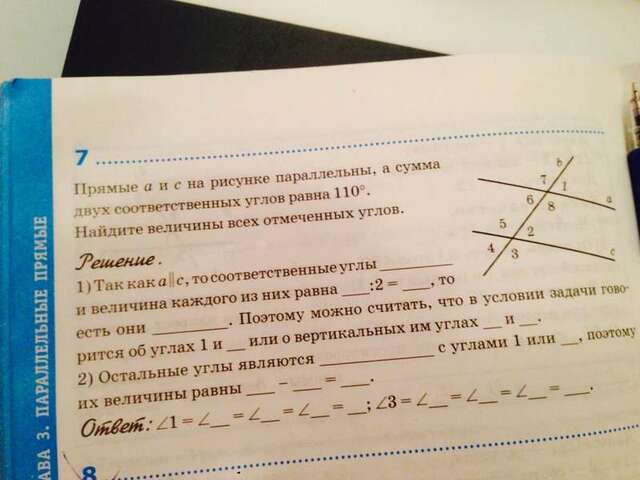 7
Прямые a и c на рисунке параллельны, а сумма
двух соответственных углов равна 110°.
Найдите величины всех отмеченных углов.
b
7 1
6 8
a
5 2
4 3
c
Решение.
1) Так как a∥c, то соответственные углы ________
и величина каждого из них равна ___:2 = ___, то
есть они ________. Поэтому можно считать, что в условии задачи гово-
рится об углах 1 и __ или о вертикальных им углах __ и __.
2) Остальные углы являются ____________ с углами 1 или __, поэтому
их величины равны ___ – ___ = ___.
Ответ: ∠1 = ∠__ = ∠__ = ∠__ = __; ∠3 = ∠__ = ∠__ = ∠__ = ___.
8
АВА 3. ПАРАЛЛЕЛЬНЫЕ ПРЯМЫЕ